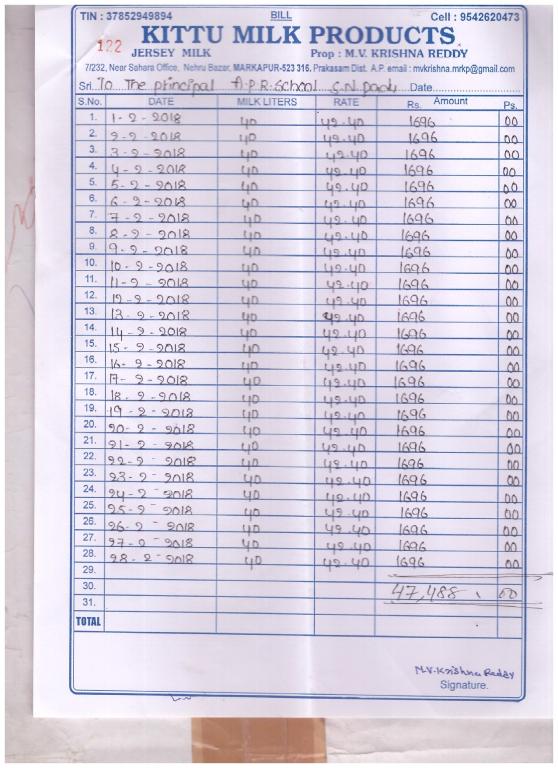 TIN : 37852949894 BILL Cell : 9542620473
KITTU MILK PRODUCTS
122 JERSEY MILK Prop : M.V. KRISHNA REDDY
7/232, Near Sahara Office, Nehru Bazar, MARKAPUR-523 316. Prakasam Dist. A.P. email : mvkrishna.mrkp@gmail.com
Sri To The principal A.P.R. School Date
S.No. DATE MILK LITERS RATE Rs. Amount Ps.
1. 1-2-2018 40 42.40 1696 00
2. 2-2-2018 40 42.40 1696 00
3. 3-2-2018 40 42.40 1696 00
4. 4-2-2018 40 42.40 1696 00
5. 5-2-2018 40 42.40 1696 00
6. 6-2-2018 40 42.40 1696 00
7. 7-2-2018 40 42.40 1696 00
8. 8-2-2018 40 42.40 1696 00
9. 9-2-2018 40 42.40 1696 00
10. 10-2-2018 40 42.40 1696 00
11. 11-2-2018 40 42.40 1696 00
12. 12-2-2018 40 42.40 1696 00
13. 13-2-2018 40 42.40 1696 00
14. 14-2-2018 40 42.40 1696 00
15. 15-2-2018 40 42.40 1696 00
16. 16-2-2018 40 42.40 1696 00
17. 17-2-2018 40 42.40 1696 00
18. 18-2-2018 40 42.40 1696 00
19. 19-2-2018 40 42.40 1696 00
20. 20-2-2018 40 42.40 1696 00
21. 21-2-2018 40 42.40 1696 00
22. 22-2-2018 40 42.40 1696 00
23. 23-2-2018 40 42.40 1696 00
24. 24-2-2018 40 42.40 1696 00
25. 25-2-2018 40 42.40 1696 00
26. 26-2-2018 40 42.40 1696 00
27. 27-2-2018 40 42.40 1696 00
28. 28-2-2018 40 42.40 1696 00
29.
30. 47,488.00
31.
TOTAL
M.V.Krishna Reddy
Signature.